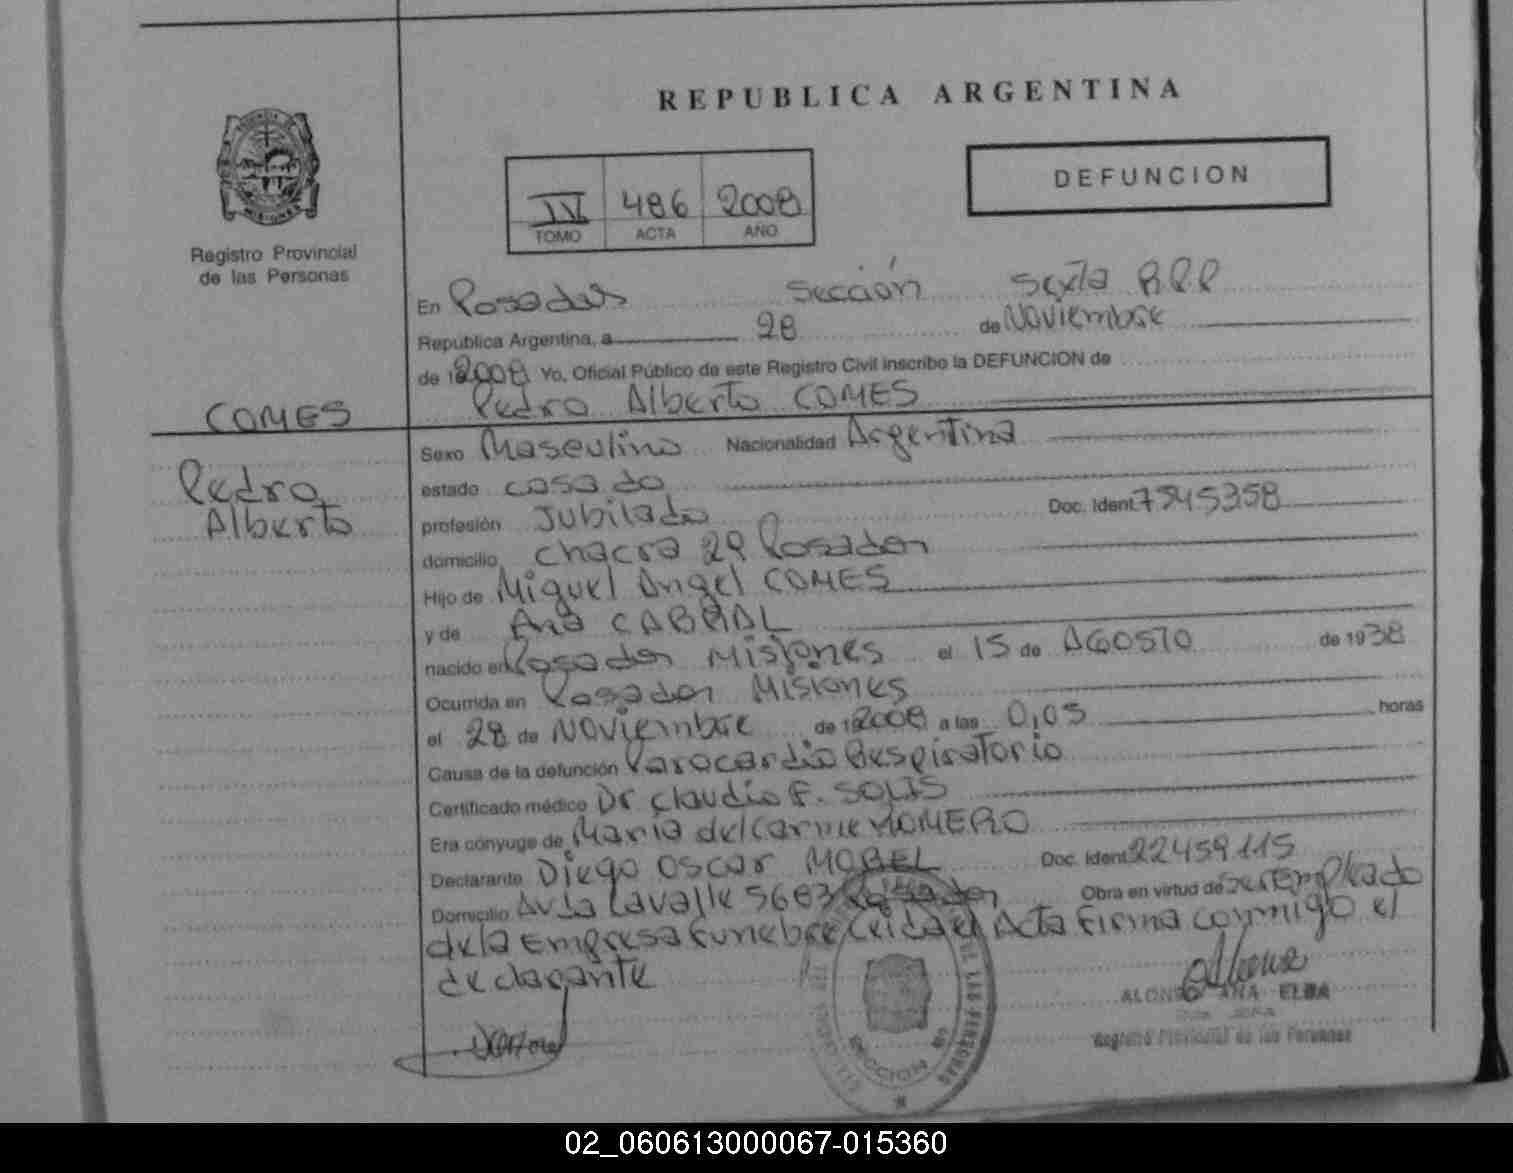 REPUBLICA ARGENTINA
DEFUNCION
IV 486 2008
TOMO ACTA AÑO
Registro Provincial
de las Personas
En Posadas Sección Sexta R.P.P
Republica Argentina, a 28 de Noviembre
de 12008 Yo, Oficial Público de este Registro Civil inscribo la DEFUNCION de
Pedro Alberto COMES
COMES
Pedro
Alberto
Sexo Masculino Nacionalidad Argentina
estado casado
profesión Jubilado Doc. Ident. 7545358
domicilio chacra 29 Posadas
Hijo de Miguel Angel COMES
y de Ana CABRAL
nacido en Posadas Misiones el 15 de AGOSTO de 1938
Ocurrida en Posadas Misiones
el 28 de Noviembre de 12008 a las 0,05 horas
Causa de la defunción Parocardio Respiratorio
Certificado médico Dr Claudio F. SOLIS
Era cónyuge de María del Carme ROMERO
Declarante Diego Oscar MOREL Doc. Ident. 22459115
Domicilio Avda Lavalle 5683 Posadas Obra en virtud de ser Empleado
de la Empresa Funebre Leida el Acta firma conmigo el
declarante
ALONSO ANA ELBA
Registro Provincial de las Personas
DE LAS PERSONAS
SECCION
02_060613000067-015360